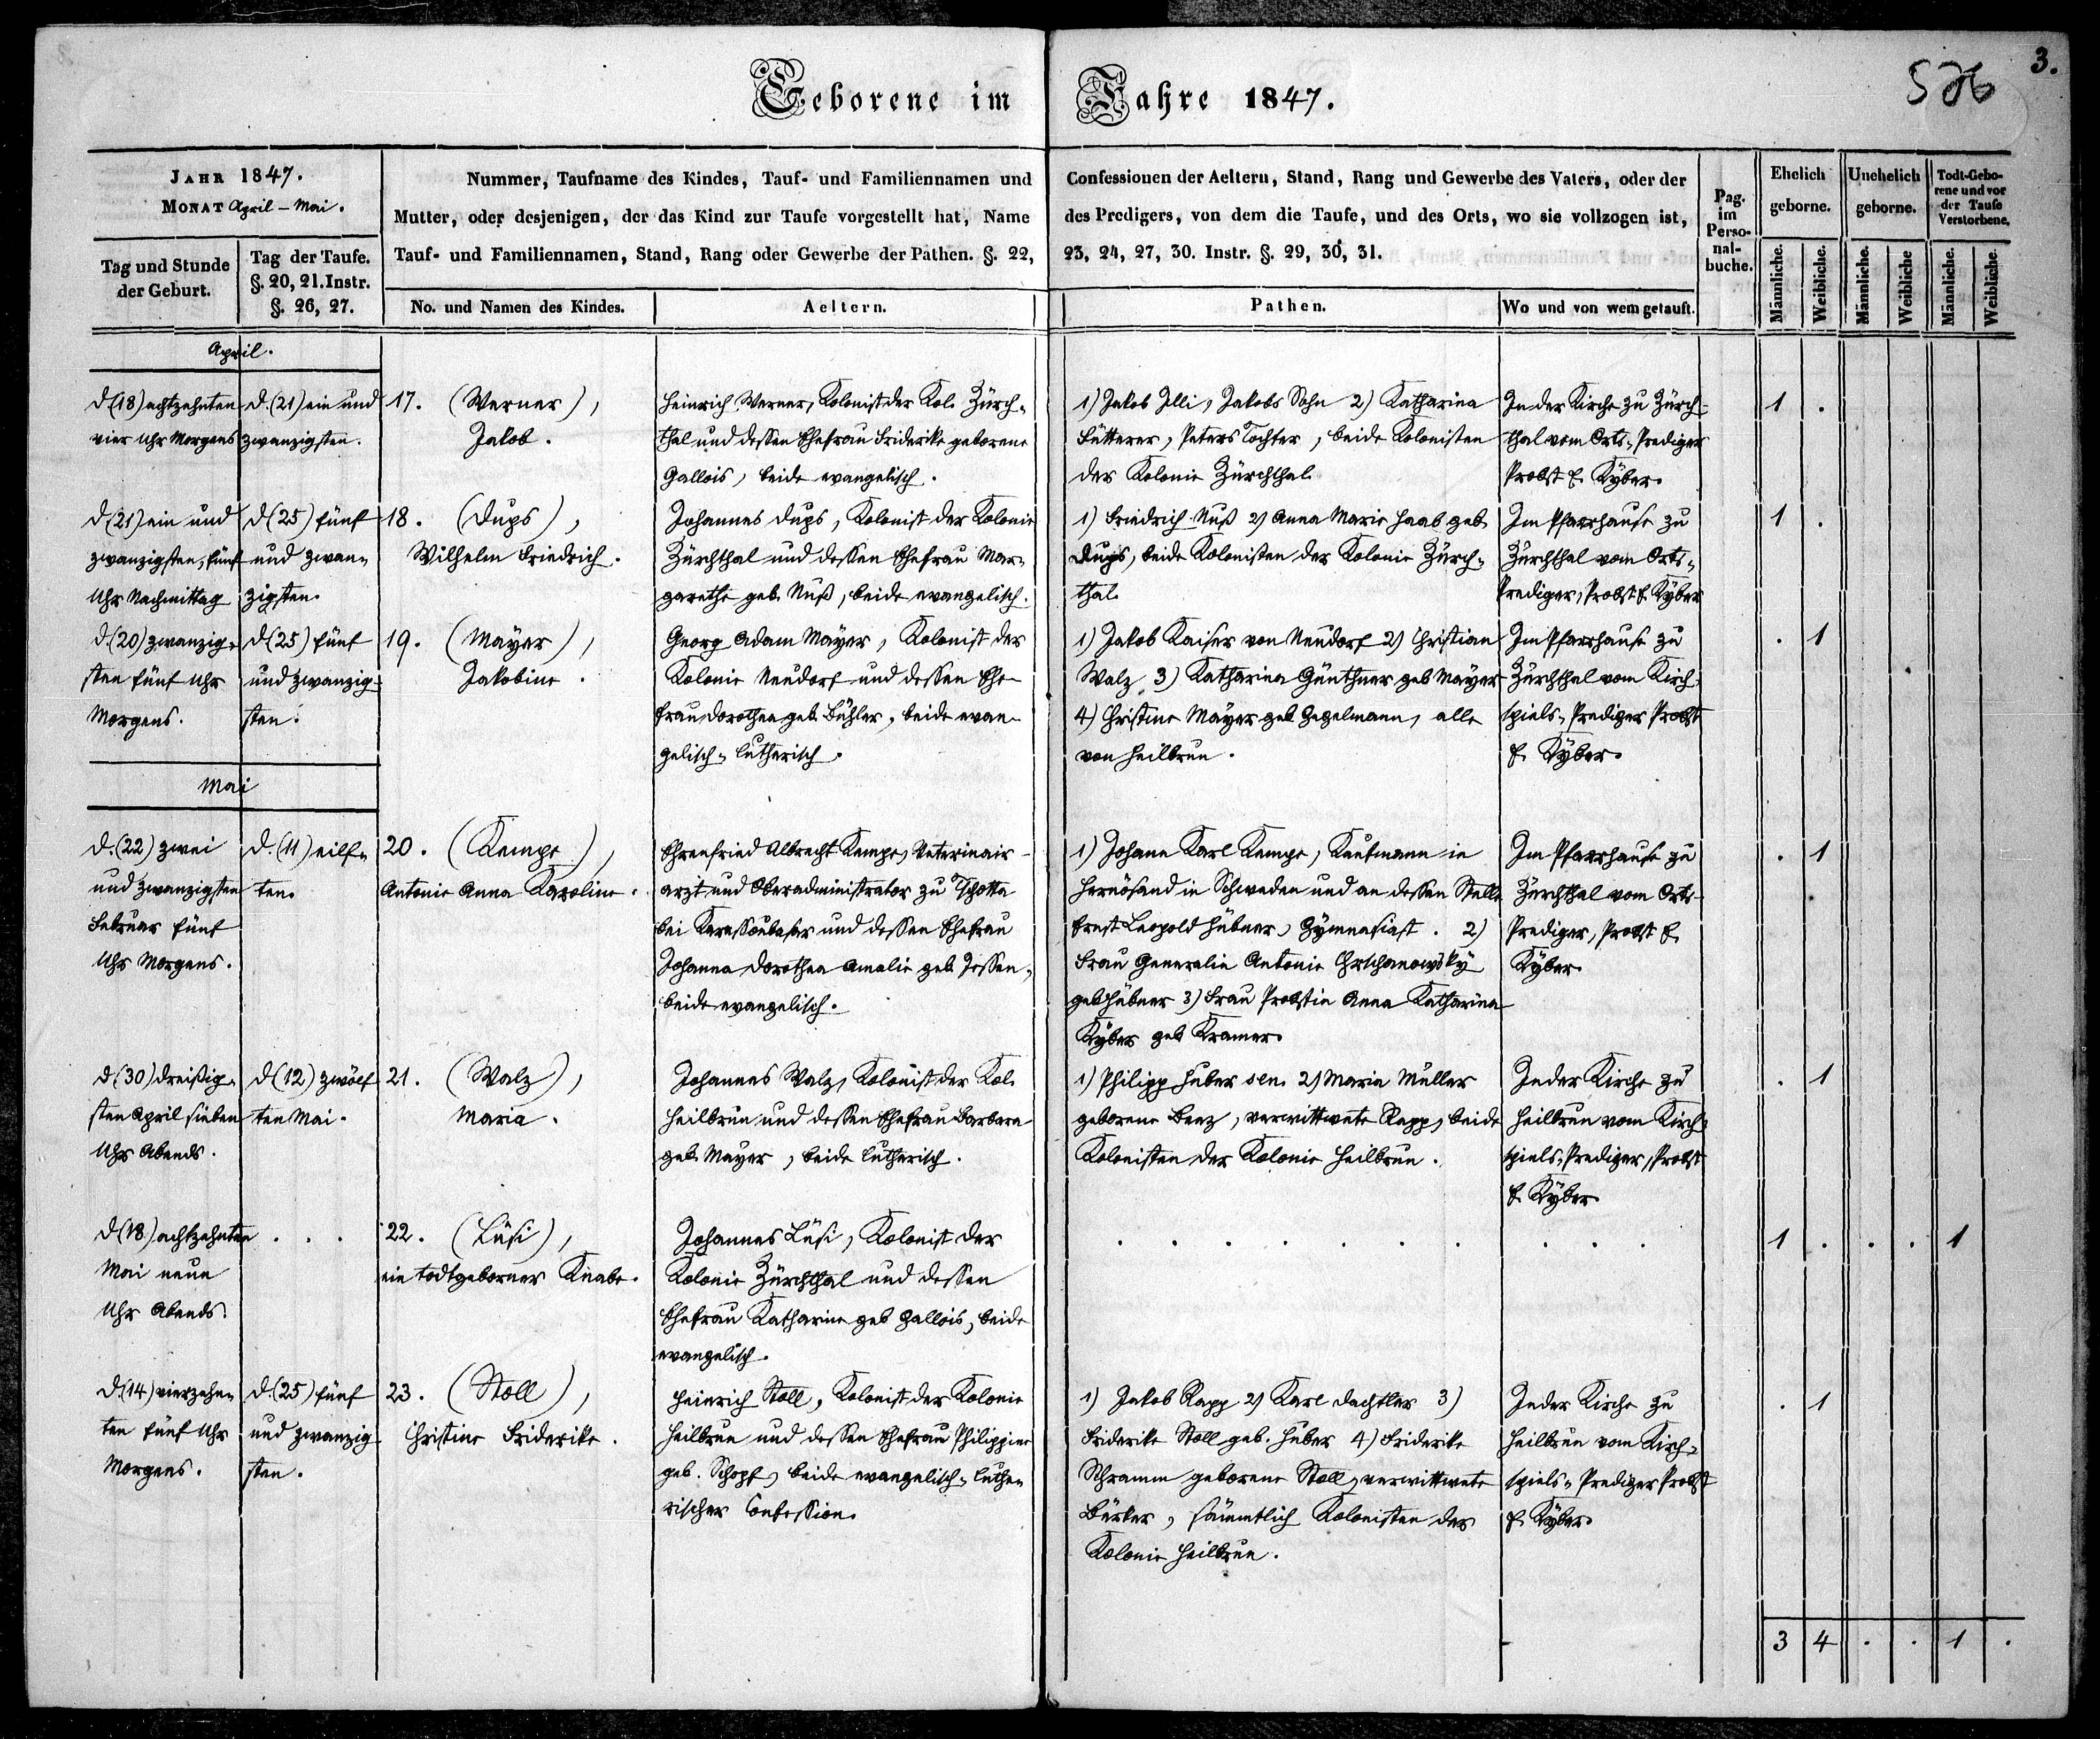 3.
586
Geborene im Jahre 1847.
JAHR 1847.
MONAT April - Mai.
Tag und Stunde
der Geburt.
Tag der Taufe.
§. 20, 21. Instr.
§. 26, 27.
Nummer, Taufname des Kindes, Tauf- und Familiennamen und
Mutter, oder desjenigen, der das Kind zur Taufe vorgestellt hat, Name
Tauf- und Familiennamen, Stand, Rang oder Gewerbe der Pathen. §. 22,
No. und Namen des Kindes.
Aeltern.
Confessionen der Aeltern, Stand, Rang und Gewerbe des Vaters, oder der
des Predigers, von dem die Taufe, und des Orts, wo sie vollzogen ist,
23, 24, 27, 30. Instr. §. 29, 30, 31.
Pathen.
Wo und von wem getauft.
Pag.
im
Perso-
nal-
buche.
Ehelich
geborne.
Unehelich
geborne.
Todt-Gebo-
rene und vor
der Taufe
Verstorbene.
Männliche.
Weibliche.
Männliche.
Weibliche
Männliche.
Weibliche.
April.
d. (18) achtzehnten
vier Uhr Morgens
d. (21) ein und
zwanzigsten.
17. (Werner),
Jakob.
Heinrich Werner, Kolonist der Kol. Zürch-
thal und dessen Ehefrau Friderike geborene
Gallois, beide evangelisch.
1) Jakob Illi, Jakobs Sohn 2) Katharina
Fütterer, Peters Tochter, beide Kolonisten
der Kolonie Zürchthal
In der Kirche zu Zürch-
thal vom Orts-Prediger
Probst F. Kyber.
1 .
d (21) ein und
zwanzigsten, fünf
Uhr Nachmittag
d (25) fünf
und zwan-
zigsten.
18. (Dups),
Wilhelm Friedrich.
Johannes Dups, Kolonist der Kolonie
Zürchthal und dessen Ehefrau Mar-
garethe geb. Nuß, beide evangelisch.
1) Friedrich Nuß 2) Anna Marie Haab geb.
Dups, beide Kolonisten der Kolonie Zürch-
thal.
Im Pfarrhause zu
Zürchthal vom Orts-
Prediger, Probst F. Kyber
1 .
d (20) zwanzig-
sten fünf Uhr
Morgens.
d (25) fünf
und zwanzig-
sten.
19. (Mayer),
Jakobine.
Georg Adam Mayer, Kolonist der
Kolonie Neudorf und dessen Ehe-
frau Dorothea geb. Bühler, beide evan-
gelisch-lutherisch.
1) Jakob Kaiser von Neudorf 2) Christian
Walz 3) Katharina Günthner geb Mayer
4) Christine Mayer geb. Hegelmann, alle
von Heilbrun.
Im Pfarrhause zu
Zürchthal vom Kirch-
spiels-Prediger Probst
F. Kyber.
. 1
Mai
d. (22) zwei
und zwanzigsten
Februar fünf
Uhr Morgens.
d. (11) eilf-
ten.
20. (Kempe),
Antonie Anna Karoline.
Ehrenfried Albrecht Kempe, Veterinair-
arzt und Oberadministrator zu Tschotta
bei Karassoubasar und dessen Ehefrau
Johanna Dorothea Amalie geb. Jessen,
beide evangelisch.
1) Johann Karl Kempe, Kaufmann in
Hernösand in Schweden und an dessen Stelle
Ernst Leopold Hübner, Gymnasiast. 2)
Frau Generalin Antonie Chrschanowsky
geb. Hübner 3) Frau Probstin Anna Katharina
Kyber geb Kramer.
Im Pfarrhause zu
Zürchthal vom Orts-
Prediger, Probst F.
Kyber.
. 1
d (30) dreißig-
sten April sieben
Uhr Abends.
d (12) zwölf
ten Mai.
21. (Walz),
Maria.
Johannes Walz, Kolonist der Kol.
Heilbrun und dessen Ehefrau Barbara
geb. Mayer, beide lutherisch.
1) Philipp Huber sen. 2) Maria Müller
geborene Benz, verwittwete Rapp, beide
Kolonisten der Kolonie Heilbrun.
In der Kirche zu
Heilbrun vom Kirch-
spiels-Prediger, Probst
F. Kyber
. 1
d (18) achtzehnten
Mai neun
Uhr Abends.
. . .
22. (Lüsi),
ein todtgeborner Knabe.
Johannes Lüsi, Kolonist der
Kolonie Zürchthal und dessen
Ehefrau Katharine geb Gallois, beide
evangelisch.
. . . . . . . . . .
1 . . . 1
d. (14) vierzehn-
ten fünf Uhr
Morgens.
d. (25) fünf
und zwanzig-
sten.
23. (Stoll),
Christine Friderike.
Heinrich Stoll, Kolonist der Kolonie
Heilbrun und dessen Ehefrau Philippine
geb. Schopf, beide evangelisch-luthe-
rischer Confession.
1) Jakob Rapp 2) Karl Dachtler 3)
Friderike Stoll geb. Huber 4) Friderike
Schramm geborene Stoll, verwittwete
Bürker, sämmtlich Kolonisten der
Kolonie Heilbrun.
In der Kirche zu
Heilbrun vom Kirch-
spiels-Prediger Probst
F. Kyber.
. 1
3 4 . . 1 .